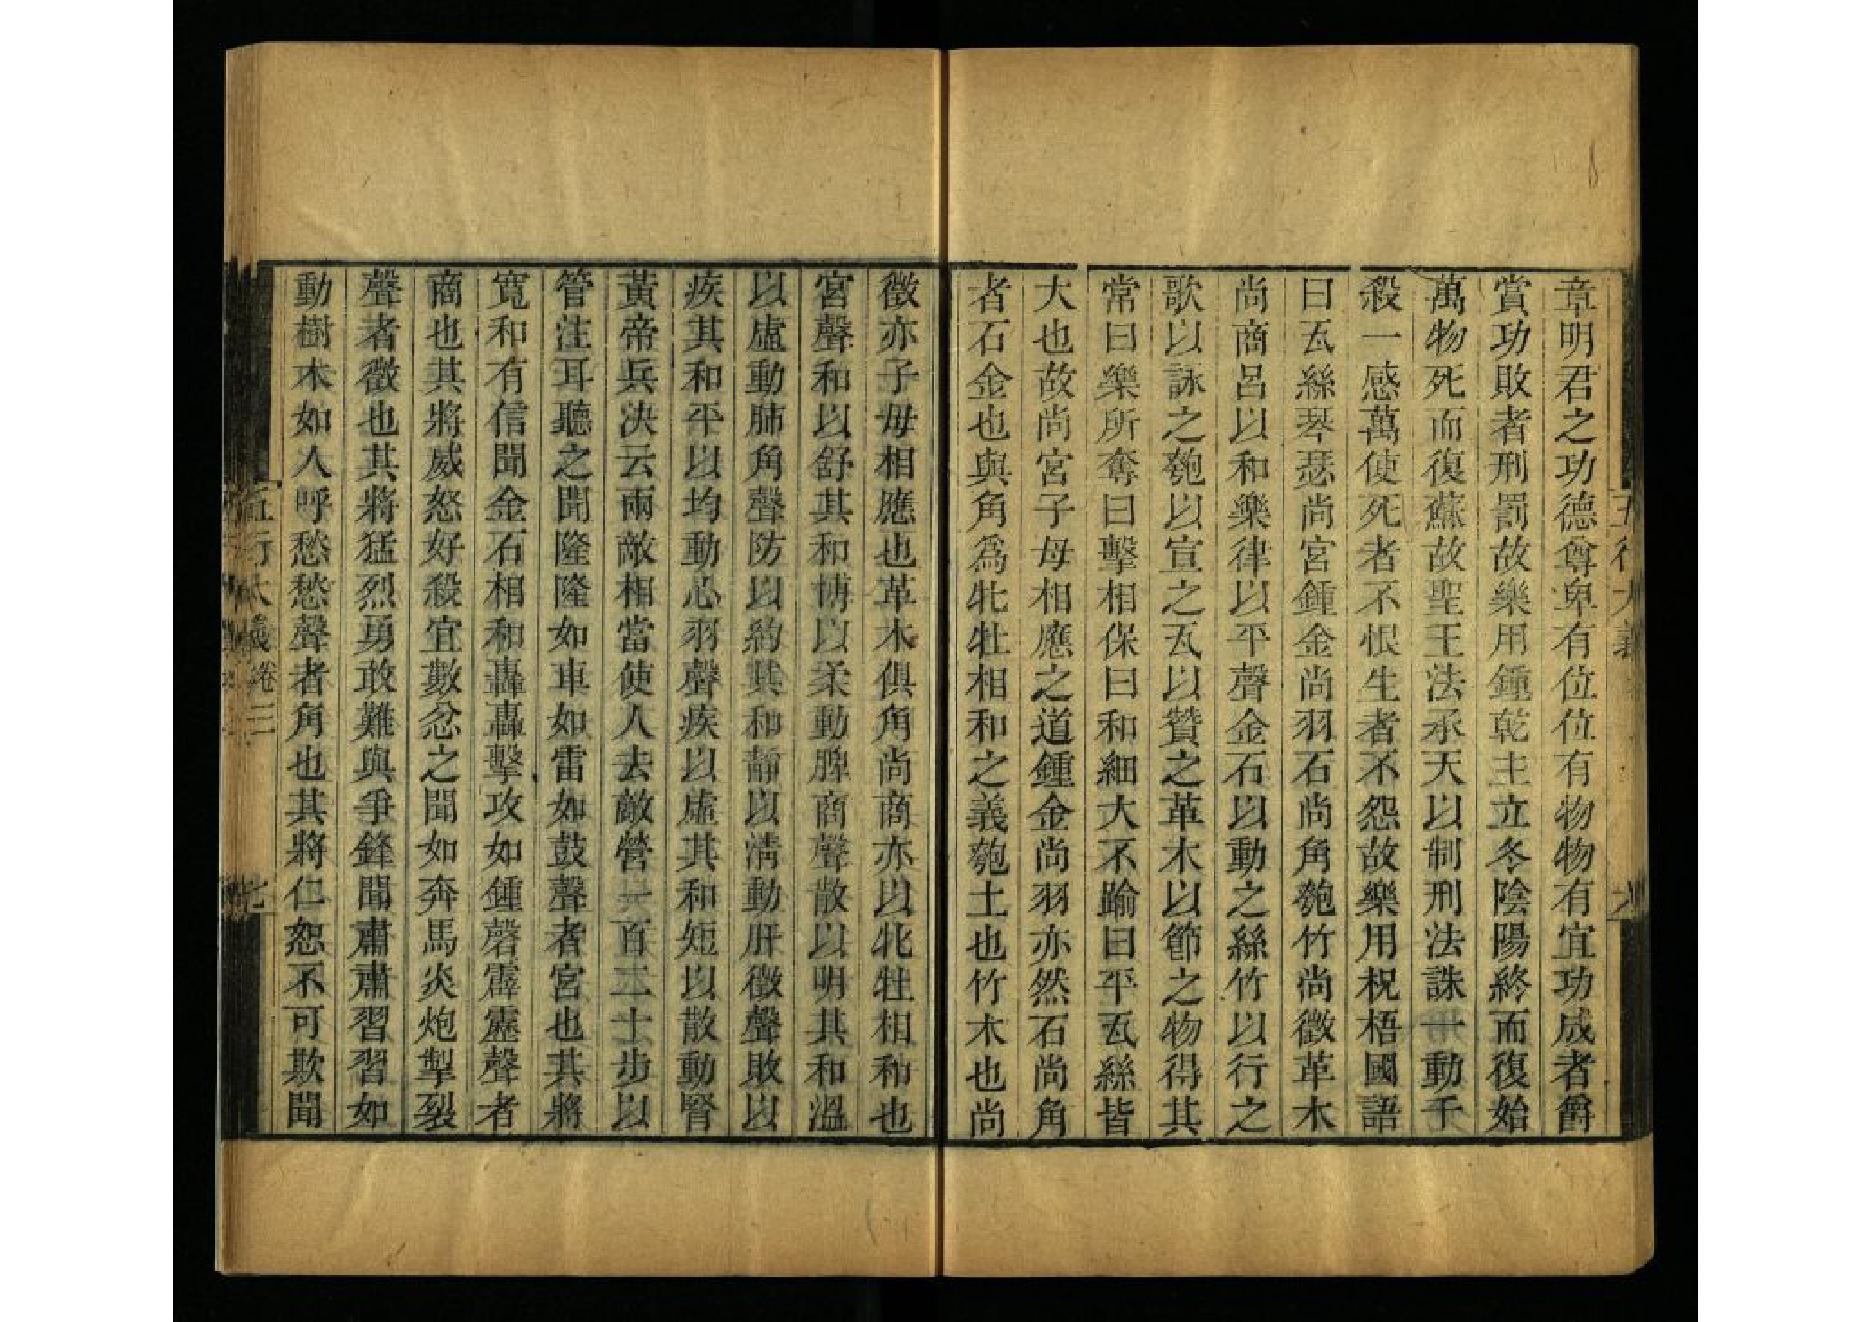 章明君之功德尊卑有位位有物物有宜功成者爵
賞功敗者刑罰故樂用鍾乾主立冬陰陽終而復始
萬物死而復蘇故聖王法承天以制刑法誅一動千
殺一感萬使死者不恨生者不怨故樂用柷梧國語
曰瓦絲琴瑟尚宮鍾金尚羽石尚角匏竹尚徵革木
尚商呂以和樂律以平聲金石以動之絲竹以行之
歌以詠之匏以宣之瓦以贊之革木以節之物得其
常曰樂所奪曰擊相保曰和細大不踰曰平瓦絲皆
大也故尚宮子母相應之道鍾金尚羽亦然石尚角
者石金也與角爲牝牡相和之義匏土也竹木也尚
徵亦子母相應也革木俱角尚商亦以牝牡相和也
宮聲和以舒其和博以柔動脾商聲散以明其和溫
以虛動肺角聲防以約其和靜以清動肝徵聲敗以
疾其和平以均動心羽聲疾以虛其和短以散動腎
黃帝兵決云兩敵相當使人去敵營一百二十步以
管注耳聽之聞隆隆如車如雷如鼓聲者宮也其將
寬和有信聞金石相和轟轟擊攻如鍾磬霹靂聲者
商也其將威怒好殺宜數忿之聞如奔馬炎炮掣裂
聲者徵也其將猛烈勇敢難與爭鋒聞肅肅習習如
動樹木如人呼愁愁聲者角也其將仁恕不可欺聞
五行大義卷三
七